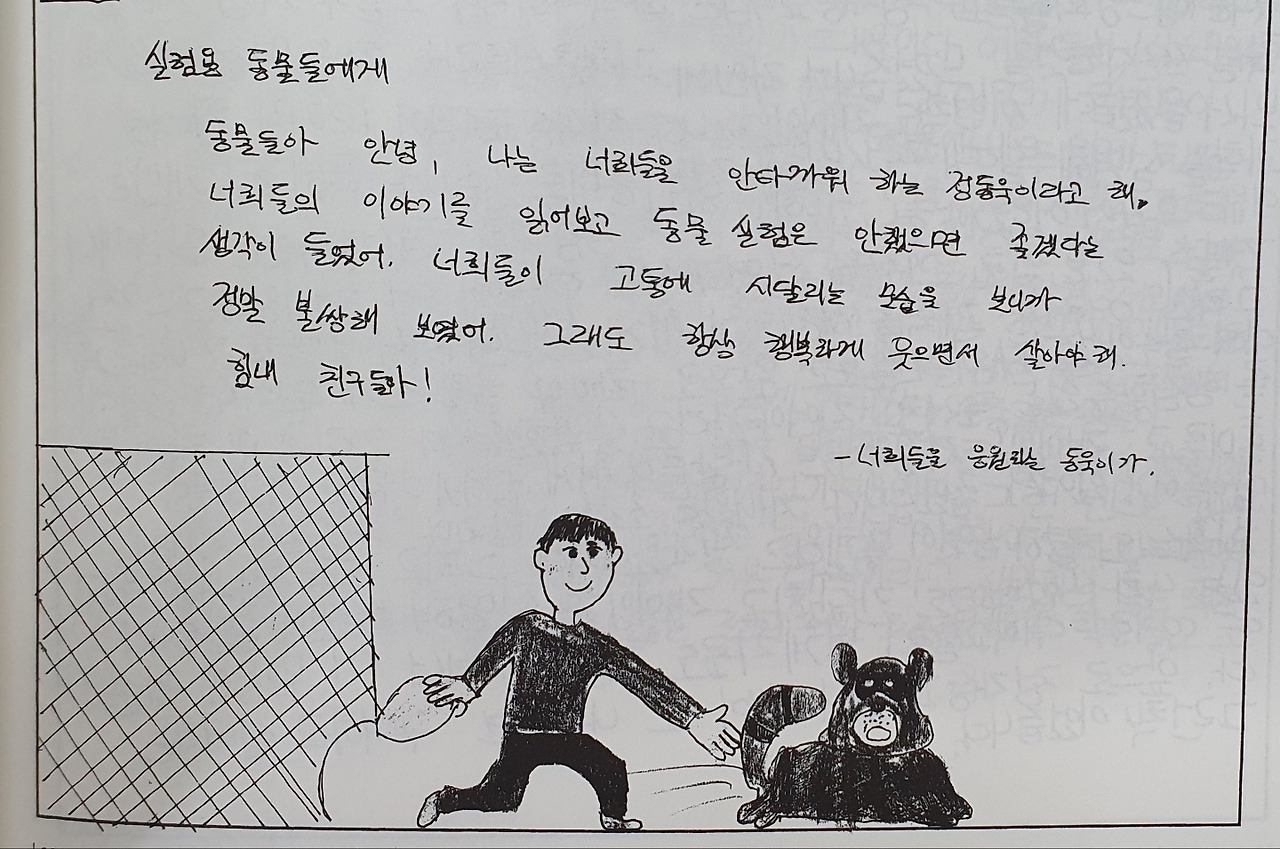 실험용 동물들에게
동물들아 안녕, 나는 너희들을 안타까워 하는 정동욱이라고 해.
너희들의 이야기를 읽어보고 동물 실험은 안했으면 좋겠다는
생각이 들었어. 너희들이 고통에 시달리는 모습을 보니까
정말 불쌍해 보였어. 그래도 항상 행복하게 웃으면서 살아야 해.
힘내 친구들아!
-너희들을 응원하는 동욱이가.